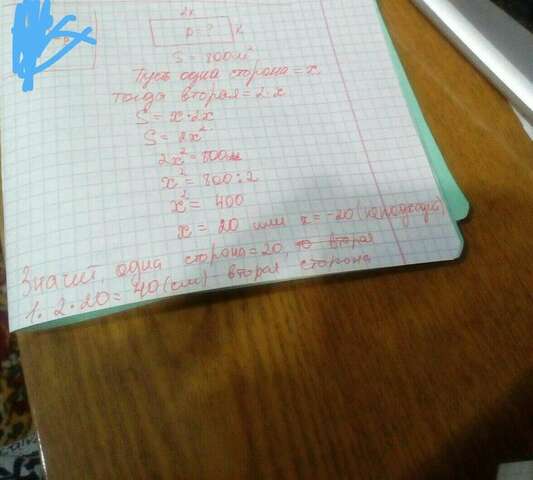 2x
P = ? x
S = 800 см²
Пусть одна сторона = x
тогда вторая = 2·x
S = x·2x
S = 2x²
2x² = 800
x² = 800:2
x² = 400
x = 20 или x = -20 (не подходит)
Значит одна сторона = 20, то вторая
1. 2·20 = 40 (см) вторая сторона